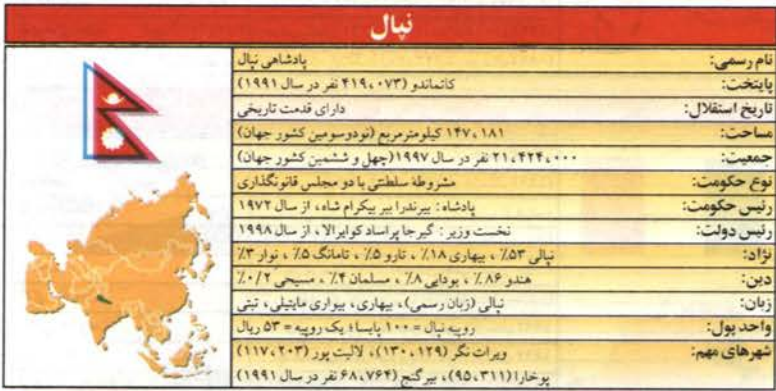 نپال
نام رسمی: پادشاهی نپال
پایتخت: کاتماندو (۴۱۹،۰۷۳ نفر در سال ۱۹۹۱)
تاریخ استقلال: دارای قدمت تاریخی
مساحت: ۱۴۷،۱۸۱ کیلومترمربع (نودوسومین کشور جهان)
جمعیت: ۲۱،۴۲۴،۰۰۰ نفر در سال ۱۹۹۷ (چهل و ششمین کشور جهان)
نوع حکومت: مشروطه سلطنتی با دو مجلس قانونگذاری
رئیس حکومت: پادشاه: بیرندرا بیر بیکرام شاه، از سال ۱۹۷۲
رئیس دولت: نخست وزیر: گیرجا پراساد کوایرالا، از سال ۱۹۹۸
نژاد: نپالی ۵۳٪، بیهاری ۱۸٪، تارو ۵٪، تامانگ ۵٪، نوار ۳٪
دین: هندو ۸۶٪، بودایی ۸٪، مسلمان ۴٪، مسیحی ۰/۲٪
زبان: نپالی (زبان رسمی)، بیهاری، بیواری مایتیلی، تبتی
واحد پول: روپیه نپال = ۱۰۰ پایسا؛ یک روپیه = ۵۳ ریال
شهرهای مهم: ویرات نگر (۱۳۰،۱۲۹)، لالیت پور (۱۱۷،۲۰۳)
پوخارا (۹۵،۳۱۱)، بیرگنج (۶۸،۷۶۴ نفر در سال ۱۹۹۱)